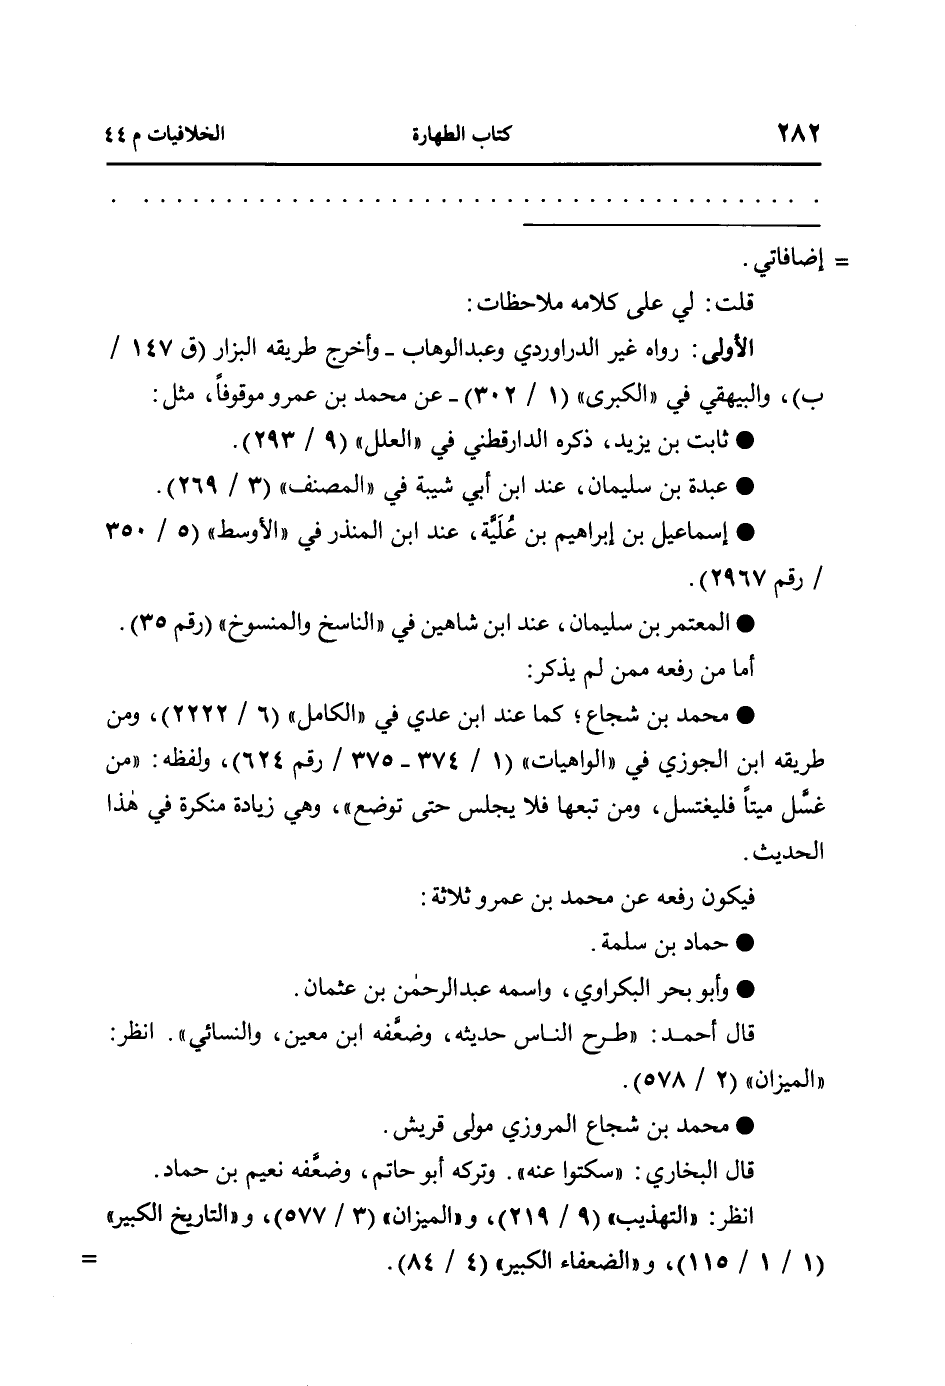 ٢٨٢ كتاب الطهارة الخلافيات م ٤٤
. . . . . . . . . . . . . . . . . . . . . . . . . . . . . . . . . . . . . . . . . . .
= إضافاتي .
قلت: لي على كلامه ملاحظات:
الأولى: رواه غير الدراوردي وعبدالوهاب ـ وأخرج طريقه البزار (ق ١٤٧ /
ب)، والبيهقي في «الكبرى» (١ / ٣٠٢) ـ عن محمد بن عمرو موقوفاً، مثل:
● ثابت بن يزيد، ذكره الدارقطني في «العلل» (٩ / ٢٩٣).
● عبدة بن سليمان، عند ابن أبي شيبة في «المصنف» (٣ / ٢٦٩).
● إسماعيل بن إبراهيم بن عُلَيَّة، عند ابن المنذر في «الأوسط» (٥ / ٣٥٠
/ رقم ٢٩٦٧).
● المعتمر بن سليمان، عند ابن شاهين في «الناسخ والمنسوخ» (رقم ٣٥).
أما من رفعه ممن لم يذكر:
● محمد بن شجاع؛ كما عند ابن عدي في «الكامل» (٦ / ٢٢٢٢)، ومن
طريقه ابن الجوزي في «الواهيات» (١ / ٣٧٤ ـ ٣٧٥ / رقم ٦٢٤)، ولفظه: «من
غسَّل ميتاً فليغتسل، ومن تبعها فلا يجلس حتى توضع»، وهي زيادة منكرة في هٰذا
الحديث.
فيكون رفعه عن محمد بن عمرو ثلاثة:
● حماد بن سلمة.
● وأبو بحر البكراوي، واسمه عبدالرحمٰن بن عثمان.
قال أحمـد: «طـرح النـاس حديثه، وضعَّفه ابن معين، والنسائي». انظر:
«الميزان» (٢ / ٥٧٨).
● محمد بن شجاع المروزي مولى قريش.
قال البخاري: «سكتوا عنه». وتركه أبو حاتم، وضعَّفه نعيم بن حماد.
انظر: «التهذيب» (٩ / ٢١٩)، و«الميزان» (٣ / ٥٧٧)، و«التاريخ الكبير»
(١ / ١ / ١١٥)، و«الضعفاء الكبير» (٤ / ٨٤). =